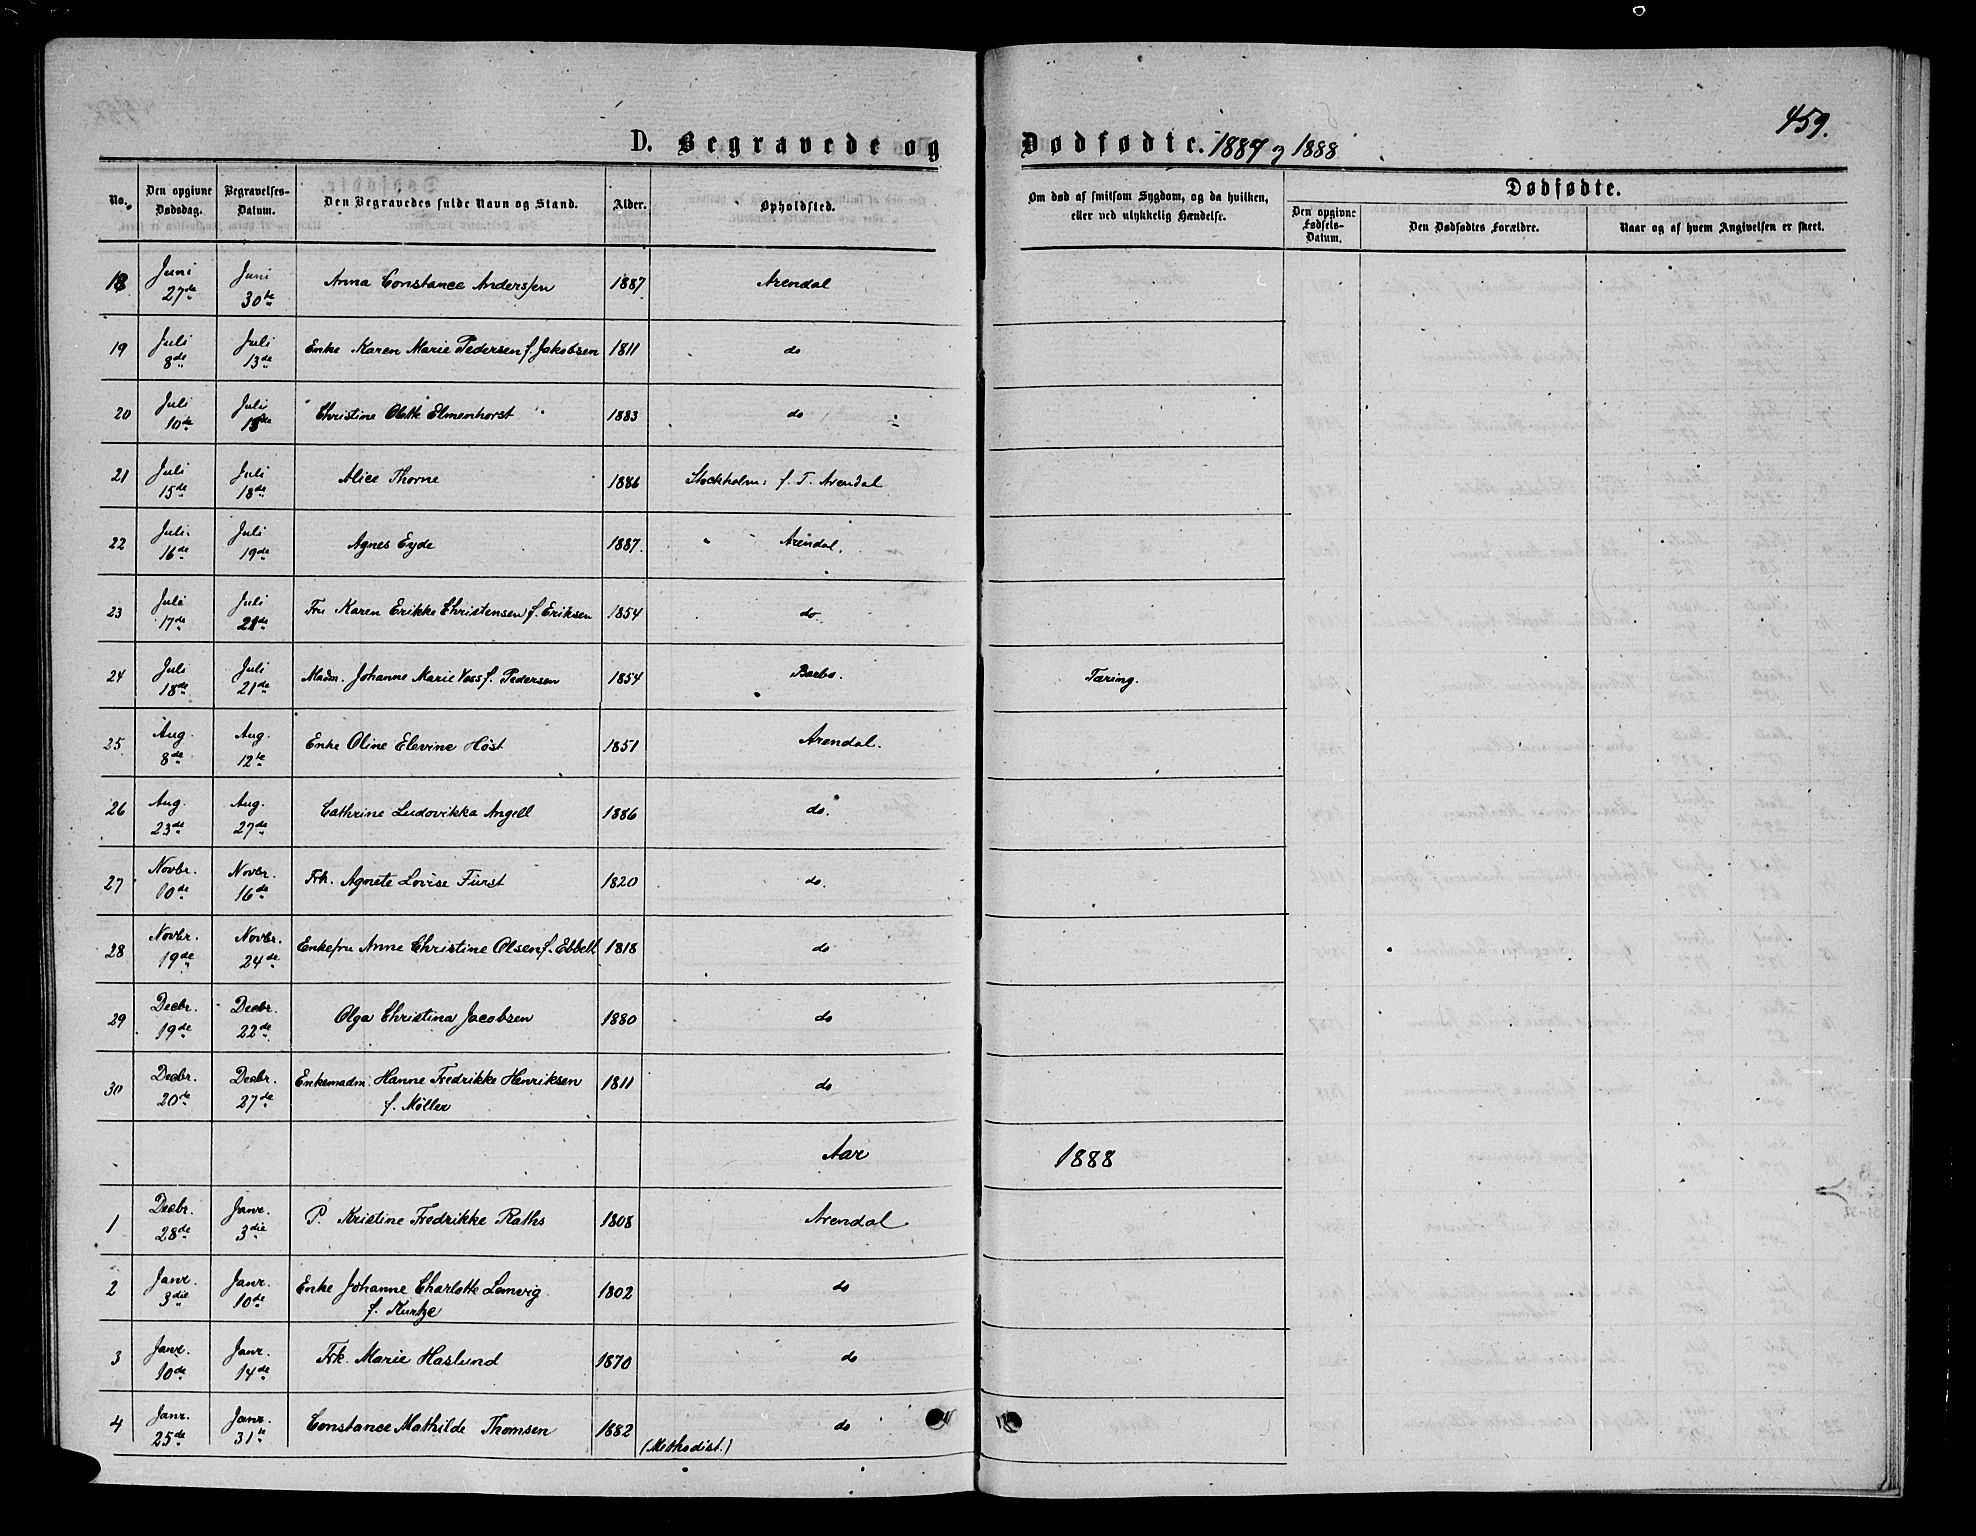 459.
D. Begravede og Dødfødte. 1887 og 1888
No. | Den opgivne Dødsdag. | Begravelses-Datum. | Den Begravedes fulde Navn og Stand. | Alder. | Opholdsted. | Om død af smitsom Sygdom, og da hvilken, eller ved ulykkelig Hændelse. | Dødfødte. | Den opgivne Fødsels-Datum. | Den Dødfødtes Forældre. | Naar og af hvem Angivelsen er skeet.
18 | Juni 27de | Juni 30te | Anna Constance Anderssen | 1887 | Arendal
19 | Juli 8de | Juli 13de | Enke Karen Marie Pedersen f. Jakobsen | 1811 | do
20 | Juli 10de | Juli | Christine Olette Elmenhorst | 1883 | do
21 | Juli 15de | Juli 18de | Alice Thorne | 1886 | Stockholm: f. T. Arendal
22 | Juli 16de | Juli 19de | Agnes Eyde | 1887. | Arendal.
23 | Juli 17de | Juli 21de | Fru Karen Erikke Christensen f. Eriksen | 1854 | do
24 | Juli 18de | Juli 21de | Madm. Johanne Marie Voss f. Pedersen | 1854 | Barbo. | Tæring.
25 | Aug. 8de | Aug. 12te | Enke Oline Elevine Höst | 1851 | Arendal.
26 | Aug. 23de | Aug. 27de | Cathrine Ludovikka Angell | 1886 | do.
27 | Novbr. 10de | Novbr. 16de | Frk. Agnete Lovise Fürst | 1820 | do.
28 | Novbr. 19de | Novbr. 24de | Enkefru Anne Christine Olsen f. Ebbell | 1818 | do
29 | Decbr. 19de | Decbr. 22de | Olga Christina Jacobsen | 1880 | do
30 | Decbr. 20de | Decbr. 27de | Enkemadm. Hanne Fredrikke Henriksen f. Møller | 1811 | do
Aar 1888
1 | Decbr. 28de | Janr. 3die | P. Kristine Fredrikke Raths | 1808 | Arendal
2 | Janr. 3die | Janr. 10de | Enke Johanne Charlotte Lemvig f. Kurtze | 1802 | do
3 | Janr. 10de | Janr. 14de | Frk. Marie Haslund | 1870 | do
4 | Janr. 25de | Janr. 31te | Constance Mathilde Thomsen | 1882 | do (Methodist.)